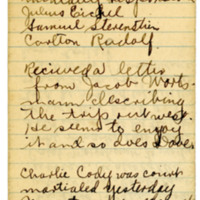 Julius Eichel
Samuel Sterenstein
Carlton Rodolf
Recieved a letter
from Jacob Worts-
mann describing
the trip out west.
He seems to enjoy
it and so does Dave.
Charlie Cody was court
martialed yesterday